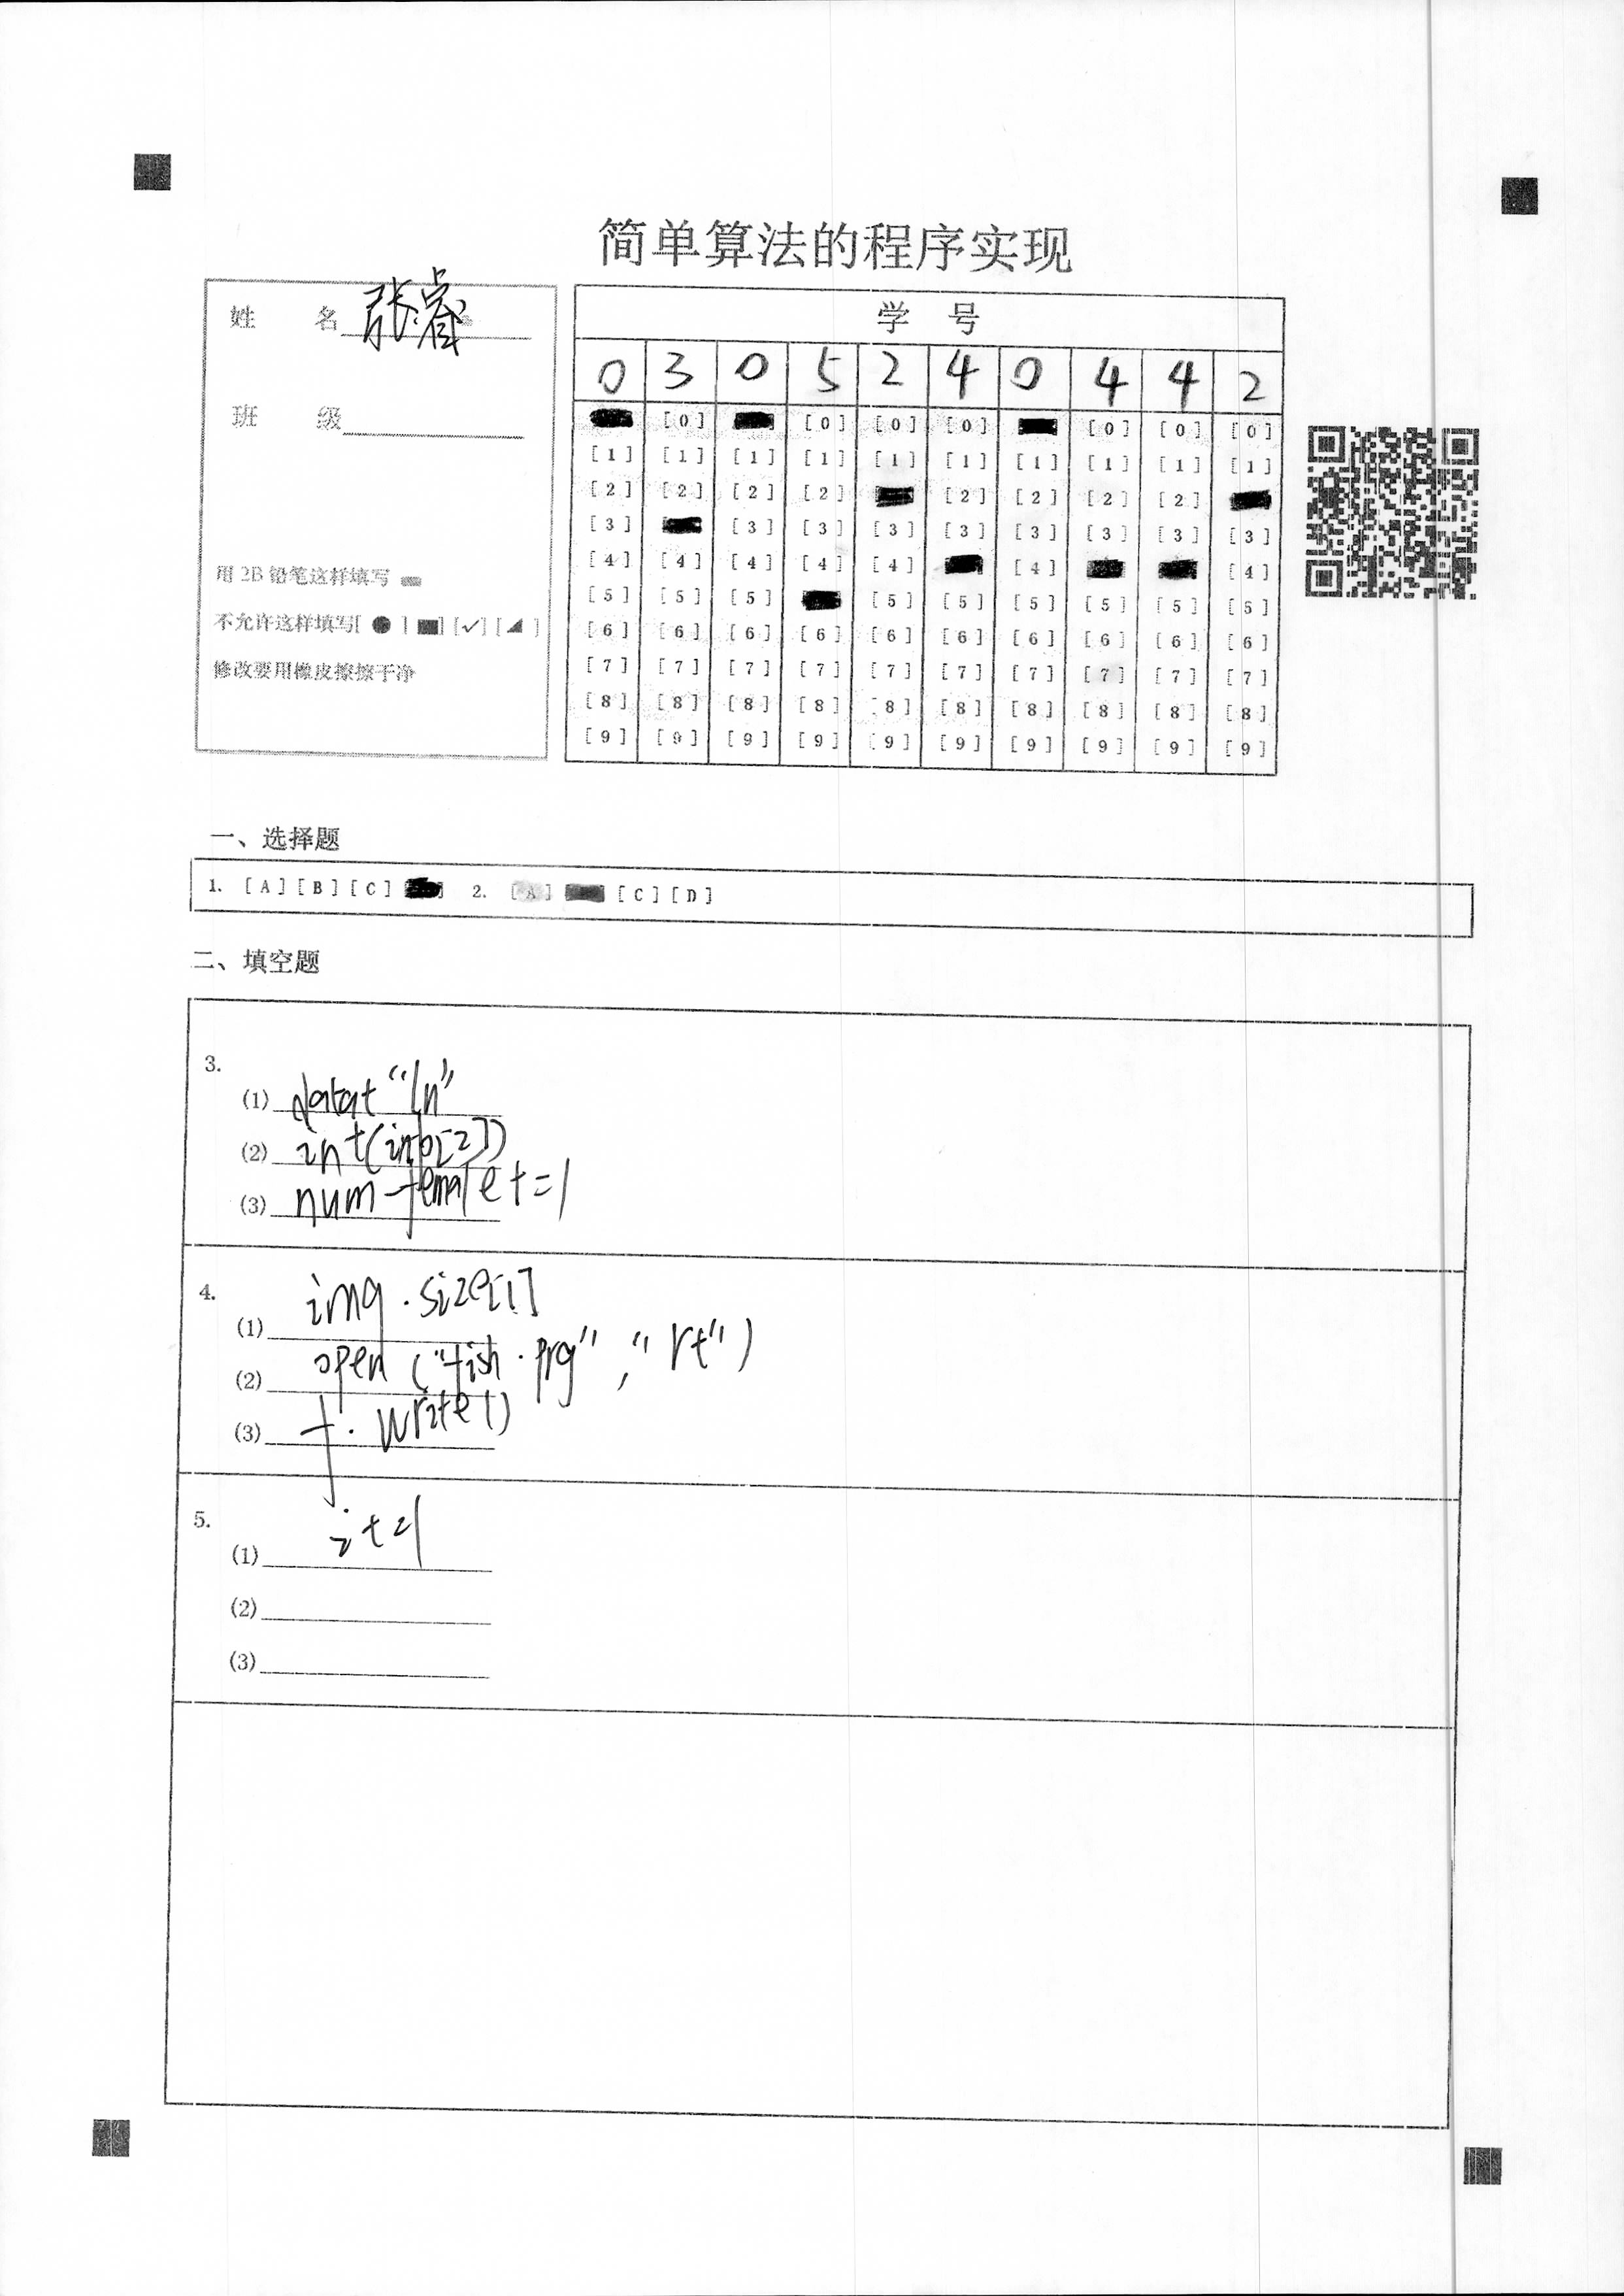 简单算法的程序实现
姓 名 张睿
班 级
用 2B 铅笔这样填写
不允许这样填写[ ● ] [■] [✓] [◢ ]
修改要用橡皮擦擦干净
学 号
0 3 0 5 2 4 0 4 4 2
[0] [0] [0] [0] [0] [0] [0]
[1] [1] [1] [1] [1] [1] [1] [1] [1] [1]
[2] [2] [2] [2] [2] [2] [2] [2]
[3] [3] [3] [3] [3] [3] [3] [3] [3]
[4] [4] [4] [4] [4] [4] [4]
[5] [5] [5] [5] [5] [5] [5] [5] [5]
[6] [6] [6] [6] [6] [6] [6] [6] [6] [6]
[7] [7] [7] [7] [7] [7] [7] [7] [7] [7]
[8] [8] [8] [8] [8] [8] [8] [8] [8] [8]
[9] [9] [9] [9] [9] [9] [9] [9] [9] [9]
一、选择题
1. [A] [B] [C] 2. [A] [C] [D]
二、填空题
3.
(1) data+ "\n"
(2) int(info[2])
(3) num-female+=1
4.
(1) img.size[1]
(2) open ("fish.prg", "rt")
(3) f.write()
5.
(1) i+=1
(2)
(3)